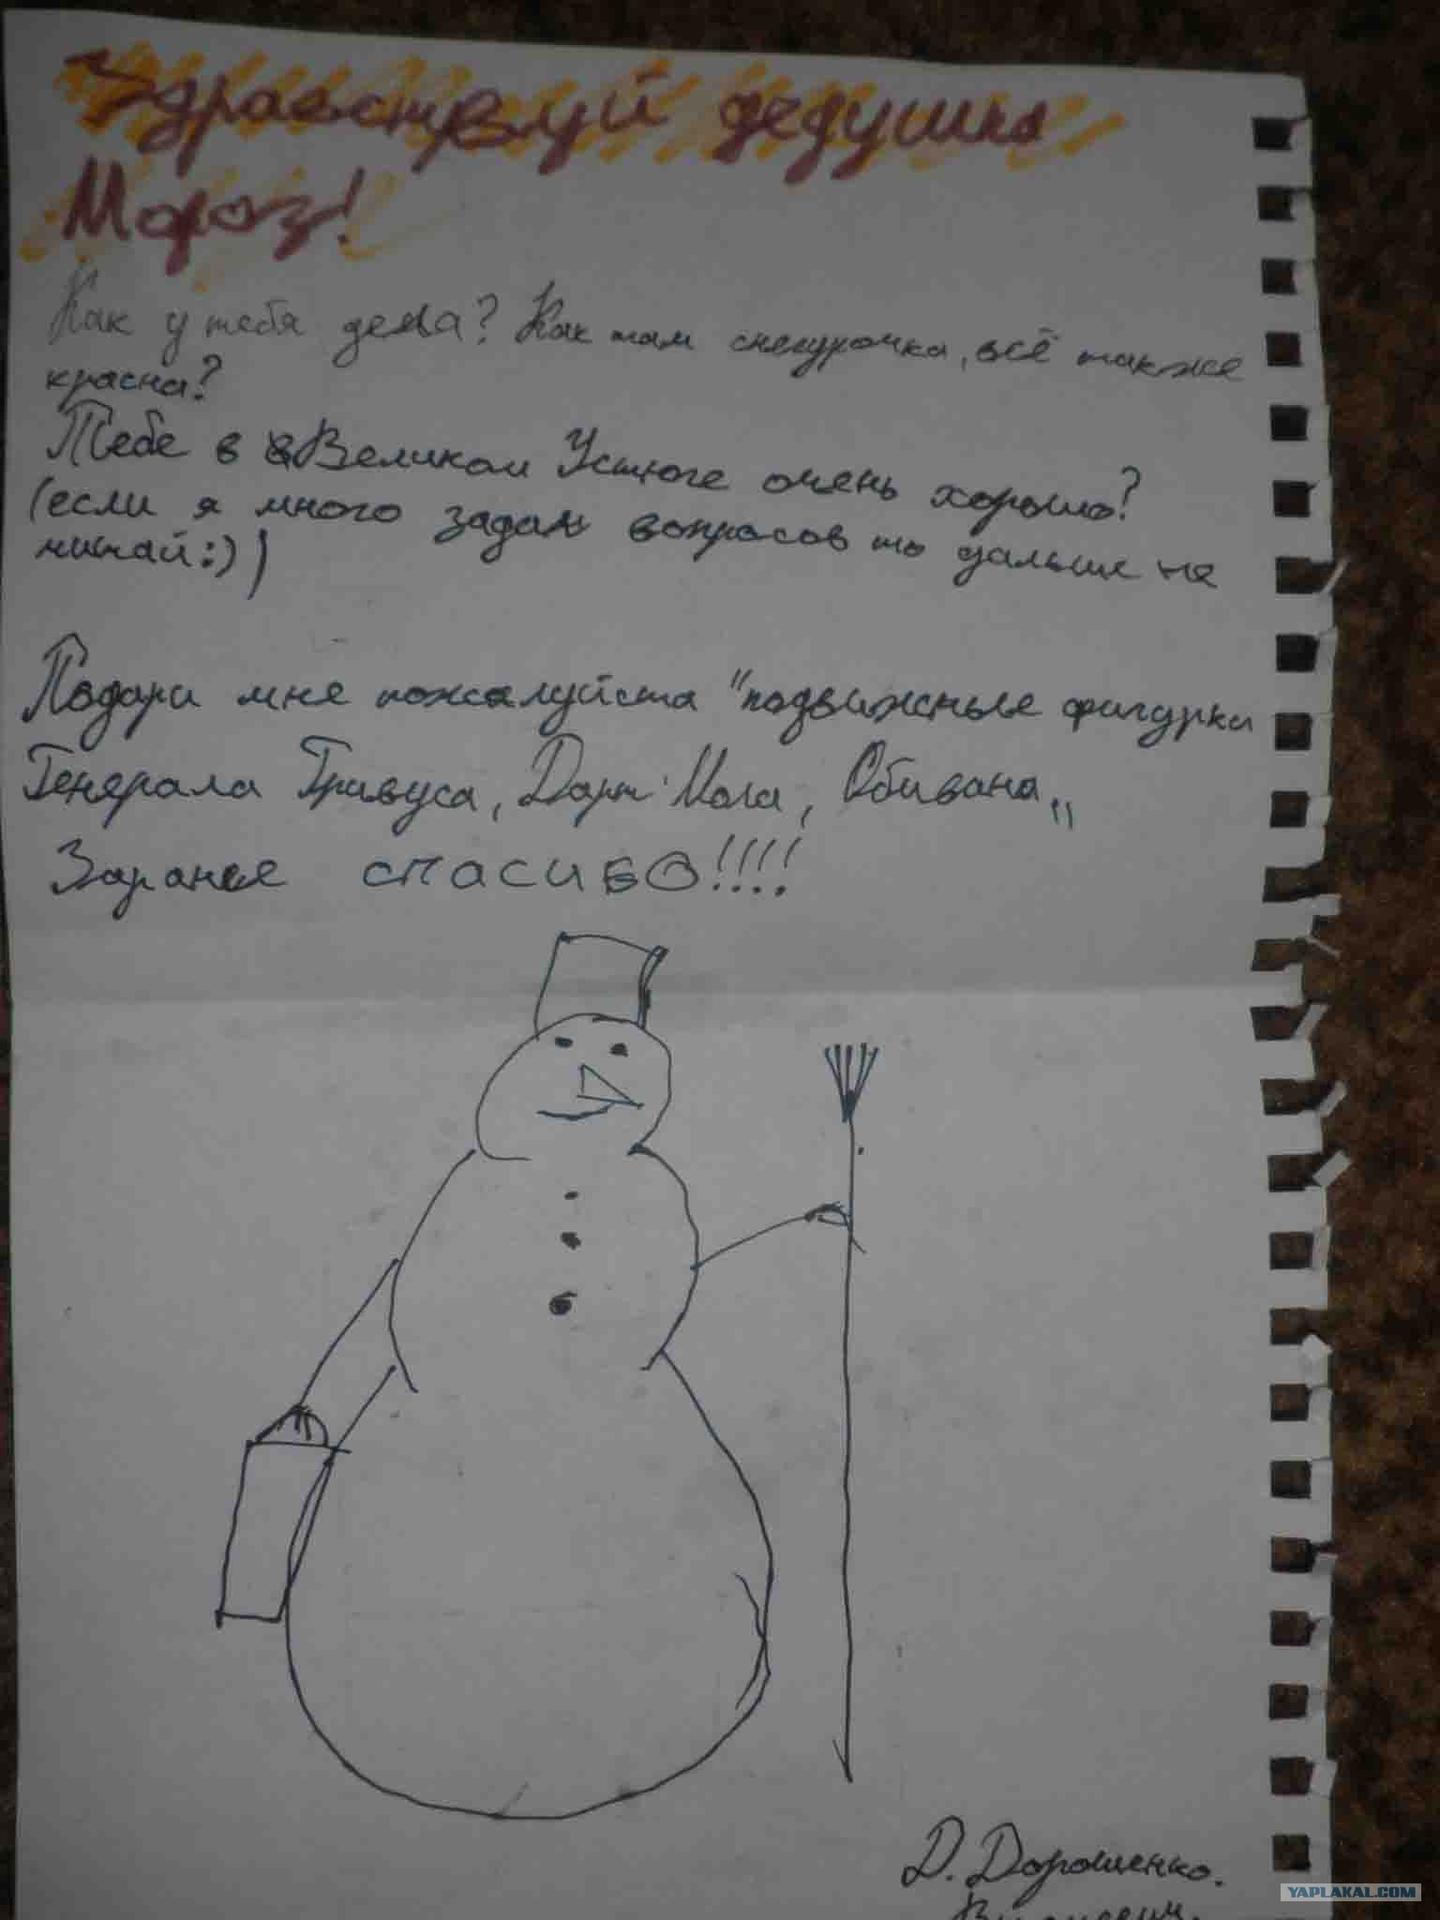 Здравствуй дедушка
Мороз!
Как у тебя дела? Как там снегурочка, всё также
красна?
Тебе в Великом Устюге очень хорошо?
(если я много задам вопросов то дальше не
читай:))
Подари мне пожалуйста "подвижные фигурки
Генерала Гривуса, Дарт Мола, Обивана"
Заранее спасибо!!!!
Д. Дорошенко.
YAPLAKAL.COM